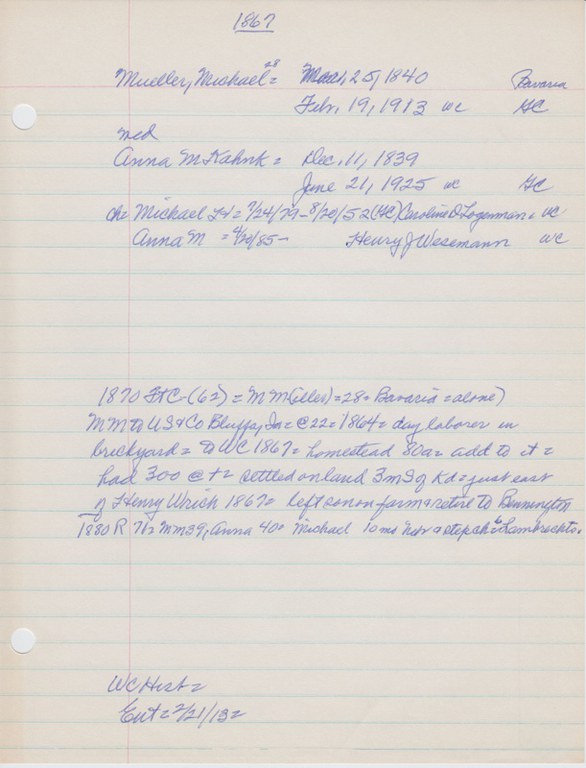 1867
Mueller, Michael = Mar. 25, 1840 Bavaria
28
Feb. 19, 1913 WC GC
wed
Anna M Kahnk = Dec. 11, 1839
June 21, 1925 WC GC
ch = Michael H = 7/24/79 - 8/20/52 (GC) Caroline D Logemann = WC
Anna M = 4/20/85 - Henry J Wesemann WC
1870 FtC - (62) = M M(üller) = 28 = Bavaria = alone)
MM to US & Co Bluffs, Ia = @ 22 = 1864 = day laborer in
brickyard = to WC 1867 = homestead 80a = add to it =
had 300 @ t = settled on land 3m S of Kd = just east
of Henry Wrich 1867 = left son on farm = retire to Bennington
1880 R 71 = MM 39, Anna 40 = Michael 10 mo Lambrechts.
WC Hist =
Ent = 2/21/13 =